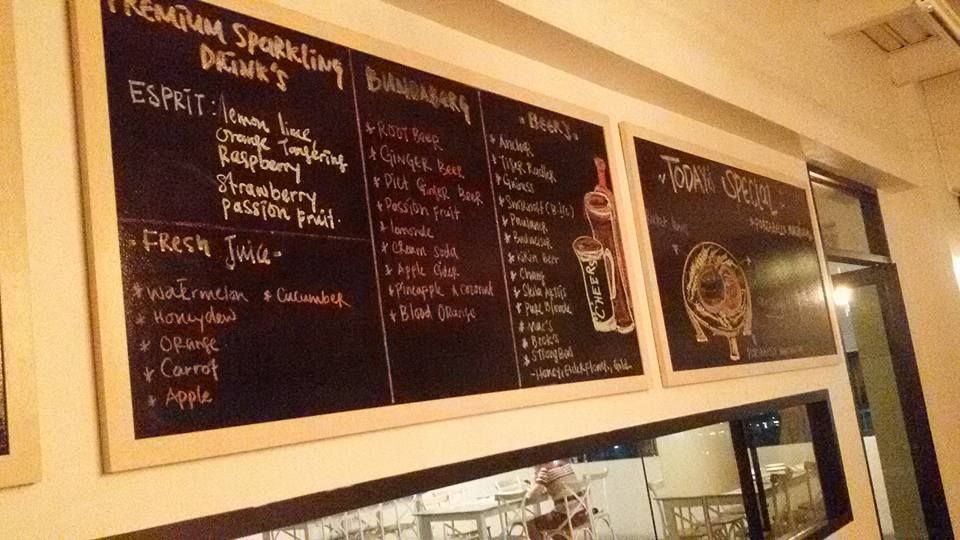 PREMIUM SPARKLING
DRINK'S
ESPRIT: lemon lime,
Orange Tangering
Raspberry
Strawberry,
passion Fruit.
FRESH Juice-
* Watermelon * Cucumber
* Honeydew
* Orange
* Carrot
* Apple
BUNDABERG
* ROOT BEER
* GINGER BEER
* Diet Ginger Beer
* Passion Fruit
* lemonade
* Cream Soda
* Apple Cider
* Pineapple & coconut
* Blood Orange
- BEERS -
* Anchor
* Tiger Radler
* Paulaner
* Budweiser
* Kirin Beer
* Chang
* Stella Artois
* Pure Blonde
* Mac's
* Beck's
* Strongbow
- Honey, Elderflower, Gold
CHEERS
TODAY'S SPECIAL